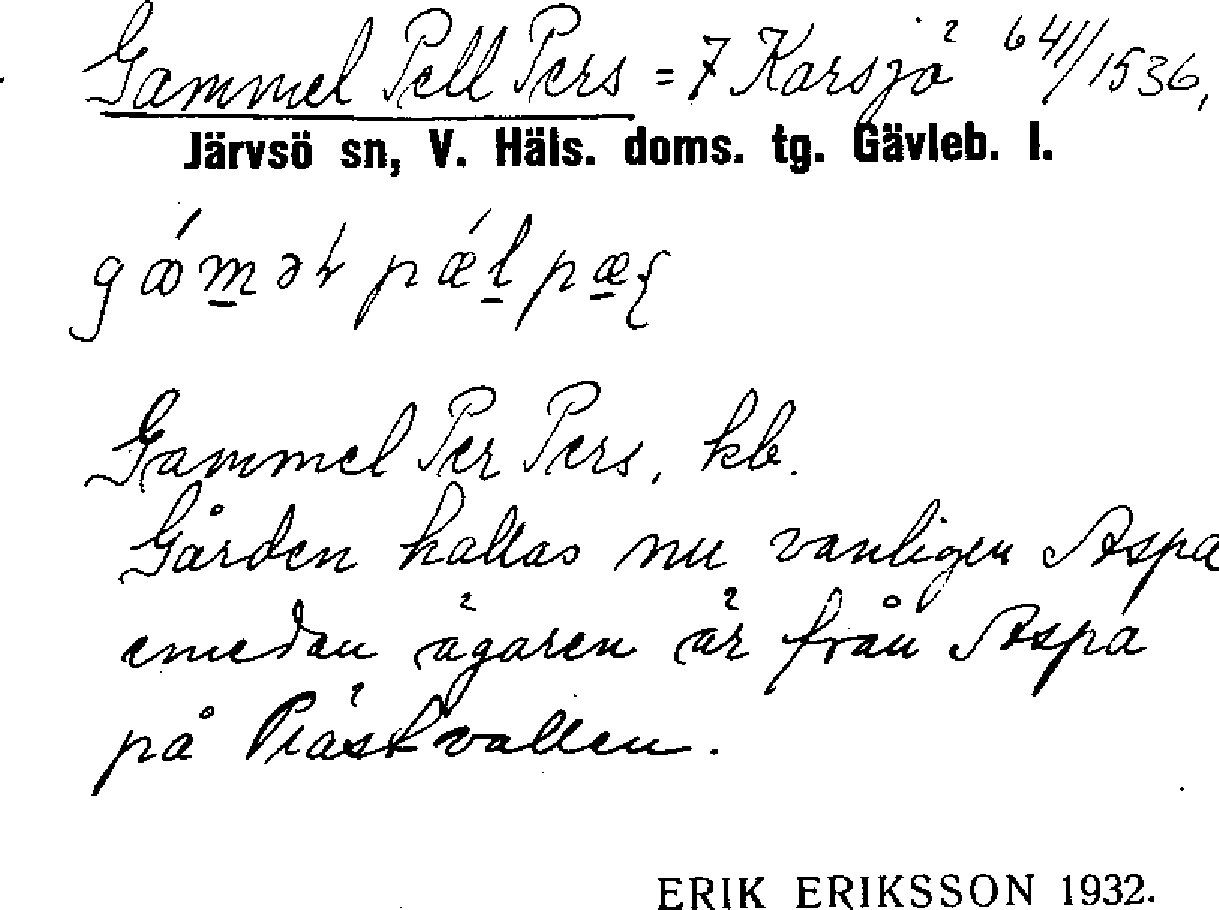 Gammel Pell Pers = 7 Karsjö 641/1536,
Järvsö sn, V. Häls. doms. tg. Gävleb. l.
Gammel Per Pers, kb.
Gården kallas nu vanligen Aspa
emedan ägaren är från Aspa
på Prästvallen.
ERIK ERIKSSON 1932.